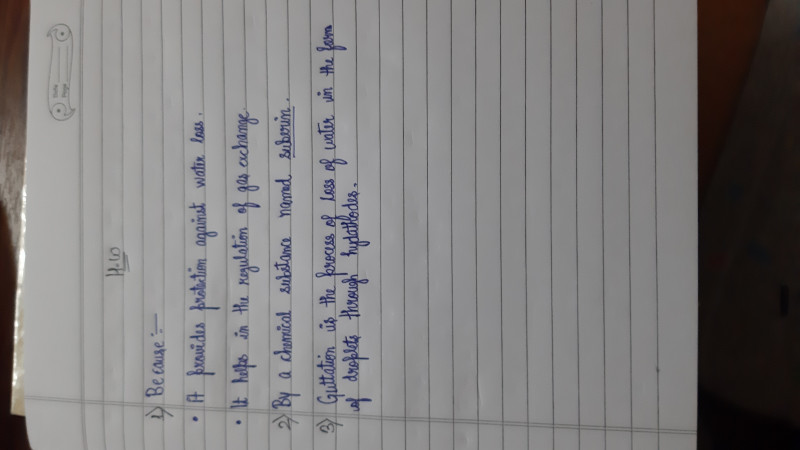 Date
Page
H.W
1) Because :-
• It provides protection against water loss.
• It helps in the regulation of gas exchange.
2) By a chemical substance named suberin.
3) Guttation is the process of loss of water in the form
of droplets through hydathodes.